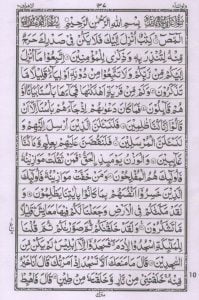 بِسْمِ اللّٰهِ الرَّحْمٰنِ الرَّحِيْمِ
الٓمّٓصٓ ۚ كِتٰبٌ اُنْزِلَ اِلَيْكَ فَلَا يَكُنْ فِيْ صَدْرِكَ حَرَجٌ
مِّنْهُ لِتُنْذِرَ بِهٖ وَذِكْرٰى لِلْمُؤْمِنِيْنَ ۝ اِتَّبِعُوْا مَآ اُنْزِلَ
اِلَيْكُمْ مِّنْ رَّبِّكُمْ وَلَا تَتَّبِعُوْا مِنْ دُوْنِهٖٓ اَوْلِيَآءَ ؕ قَلِيْلًا مَّا
تَذَكَّرُوْنَ ۝ وَكَمْ مِّنْ قَرْيَةٍ اَهْلَكْنٰهَا فَجَآءَهَا بَاْسُنَا بَيَاتًا اَوْ هُمْ
قَآئِلُوْنَ ۝ فَمَا كَانَ دَعْوٰىهُمْ اِذْ جَآءَهُمْ بَاْسُنَآ اِلَّآ اَنْ
قَالُوْٓا اِنَّا كُنَّا ظٰلِمِيْنَ ۝ فَلَنَسْئَلَنَّ الَّذِيْنَ اُرْسِلَ اِلَيْهِمْ وَ
لَنَسْئَلَنَّ الْمُرْسَلِيْنَ ۝ فَلَنَقُصَّنَّ عَلَيْهِمْ بِعِلْمٍ وَّمَا كُنَّا
غَآئِبِيْنَ ۝ وَالْوَزْنُ يَوْمَئِذِ ِۨالْحَقُّ ۚ فَمَنْ ثَقُلَتْ مَوَازِيْنُهٗ
فَاُولٰٓئِكَ هُمُ الْمُفْلِحُوْنَ ۝ وَمَنْ خَفَّتْ مَوَازِيْنُهٗ فَاُولٰٓئِكَ
الَّذِيْنَ خَسِرُوْٓا اَنْفُسَهُمْ بِمَا كَانُوْا بِاٰيٰتِنَا يَظْلِمُوْنَ ۝ وَ
لَقَدْ مَكَّنّٰكُمْ فِي الْاَرْضِ وَجَعَلْنَا لَكُمْ فِيْهَا مَعَايِشَ ؕ قَلِيْلًا
مَّا تَشْكُرُوْنَ ۝ وَلَقَدْ خَلَقْنٰكُمْ ثُمَّ صَوَّرْنٰكُمْ ثُمَّ قُلْنَا
لِلْمَلٰٓئِكَةِ اسْجُدُوْا لِاٰدَمَ ۖ فَسَجَدُوْٓا اِلَّآ اِبْلِيْسَ ؕ لَمْ يَكُنْ مِّنَ
السّٰجِدِيْنَ ۝ قَالَ مَا مَنَعَكَ اَلَّا تَسْجُدَ اِذْ اَمَرْتُكَ ؕ قَالَ اَنَا خَيْرٌ
مِّنْهُ ۚ خَلَقْتَنِيْ مِنْ نَّارٍ وَّخَلَقْتَهٗ مِنْ طِيْنٍ ۝ قَالَ فَاهْبِطْ
10